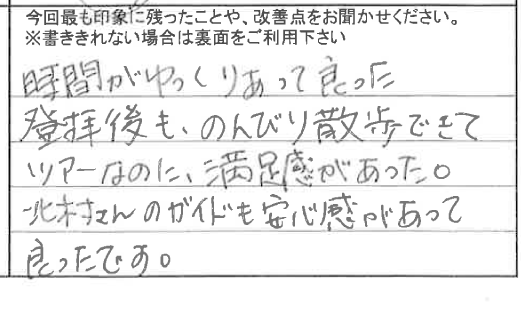 今回最も印象に残ったことや、改善点をお聞かせください。
※書ききれない場合は裏面をご利用下さい
時間がゆっくりあって良った
登拝後も、のんびり散歩できて
ツアーなのに、満足感があった。
北村さんのガイドも安心感があって
良ったです。